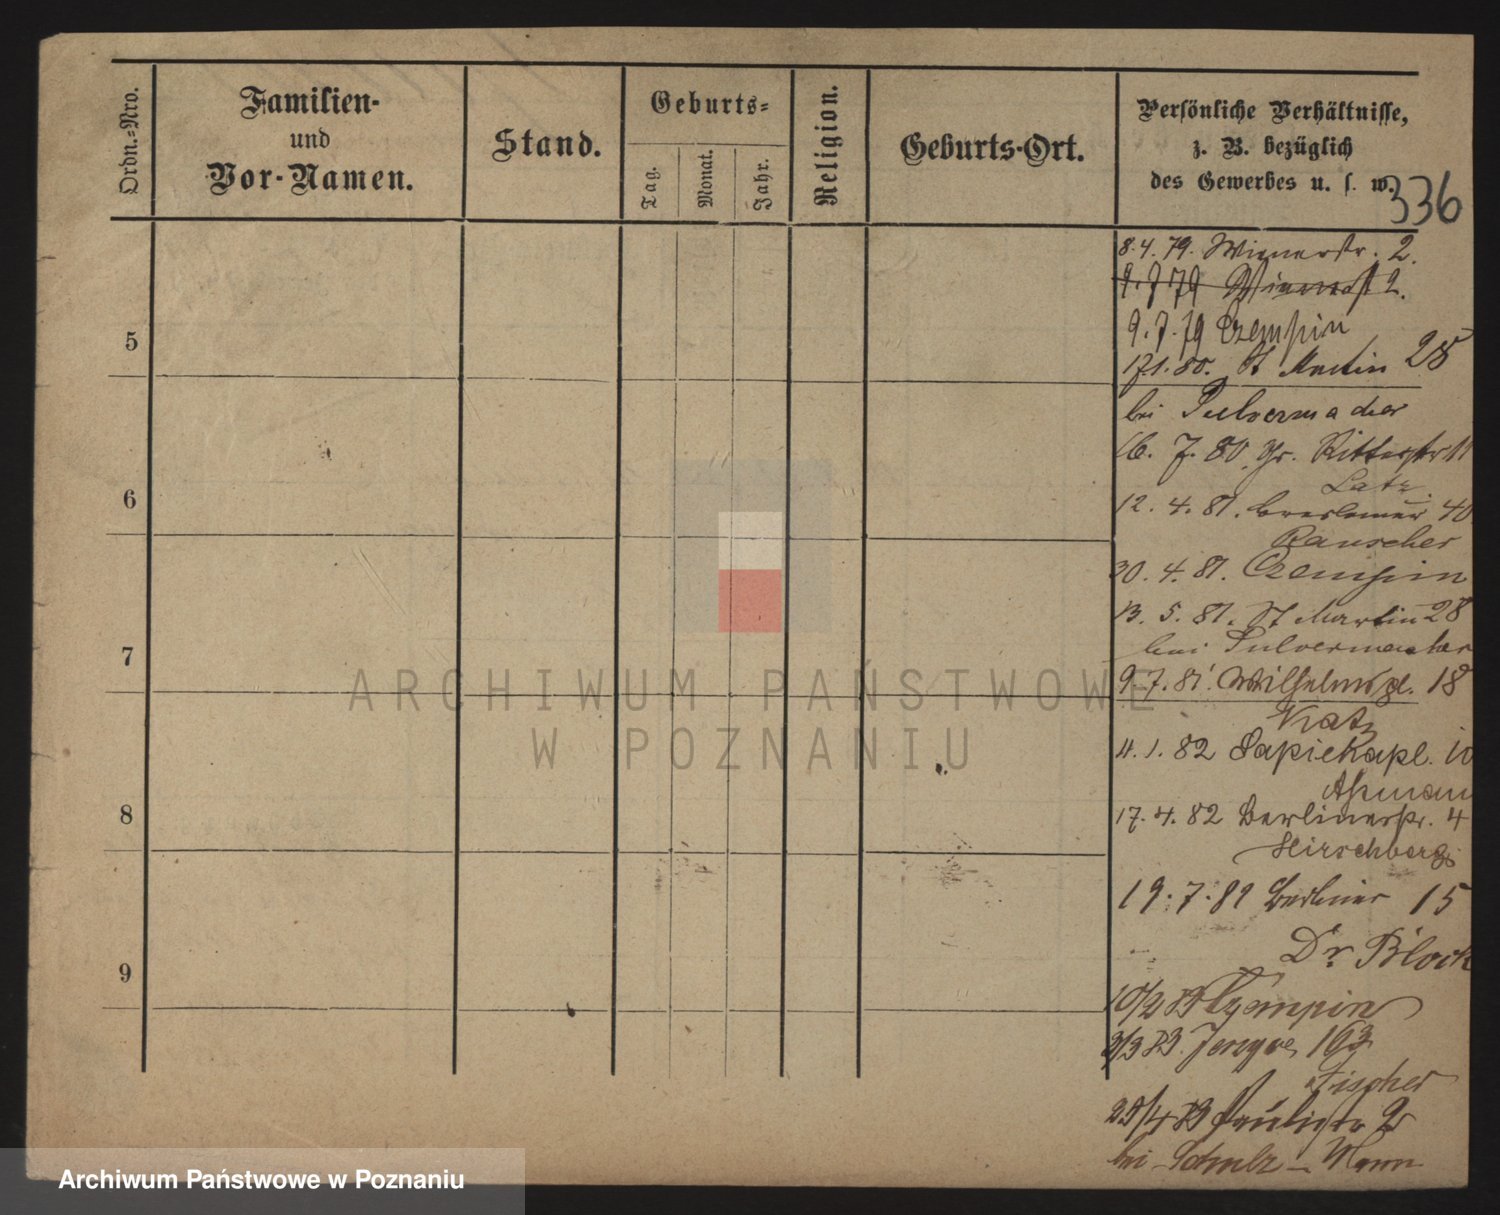 Ordn.=Nro.
Familien-
und
Vor-Namen.
Stand.
Geburts=
Tag.
Monat.
Jahr.
Religion.
Geburts-Ort.
Persönliche Verhältnisse,
z. B. bezüglich
des Gewerbes u. s. w.
336
8.4.79. Wienerstr. 2.
9.7.79 2.
9.7.79 Czempin
St Martin 28
5
bei Pulvermacher
16. 7. 80. Gr. Ritterstr 11
Latz
6
12. 4. 81. Breslauer 40
Rauscher
30. 4. 81. Czempin
13. 5. 81. St Martin 28
bei Pulvermacher
7
9.7.81. Wilhelmspl. 18
Katz
4.1.82 Sapiehapl. 10
Aßmann
8
17.4.82 Berlinerstr. 4
Hirschberg
19.7.82 Berliner 15
Dr. Block
9
10/2 83 Czempin
3/3 83. 163
Fischer
25/4 83 2
bei Schulz
ARCHIWUM PAŃSTWOWE
W POZNANIU
Archiwum Państwowe w Poznaniu